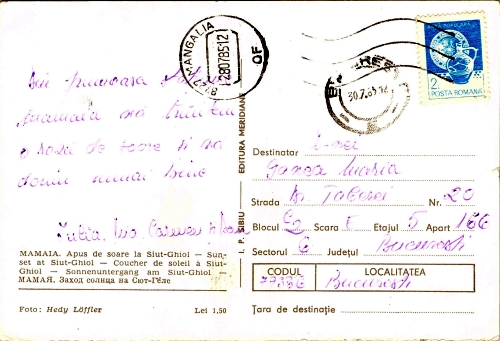 8727 MANGALIA
28078512
OF
BUCUREȘTI
30.7.85.12
ARTA POPULARA
2
POSTA ROMANA
Din frumoasa
mamaia vă trimitem
o rază de soare și vă
dorim numai bine
Iulia, Carmen și
MAMAIA. Apus de soare la Siut-Ghiol — Sun-
set at Siut-Ghiol — Coucher de soleil à Siut-
Ghiol — Sonnenuntergang am Siut-Ghiol —
МАМАЯ. Заход солнца на Сют-Гёле
Foto: Hedy Löffler
Lei 1,50
I. P. SIBIU EDITURA MERIDIANE
Destinatar
Maria
Strada Taberei Nr. 20
Blocul Scara E Etajul 5 Apart 166
Sectorul 6 Județul București
CODUL LOCALITATEA
București
Țara de destinație